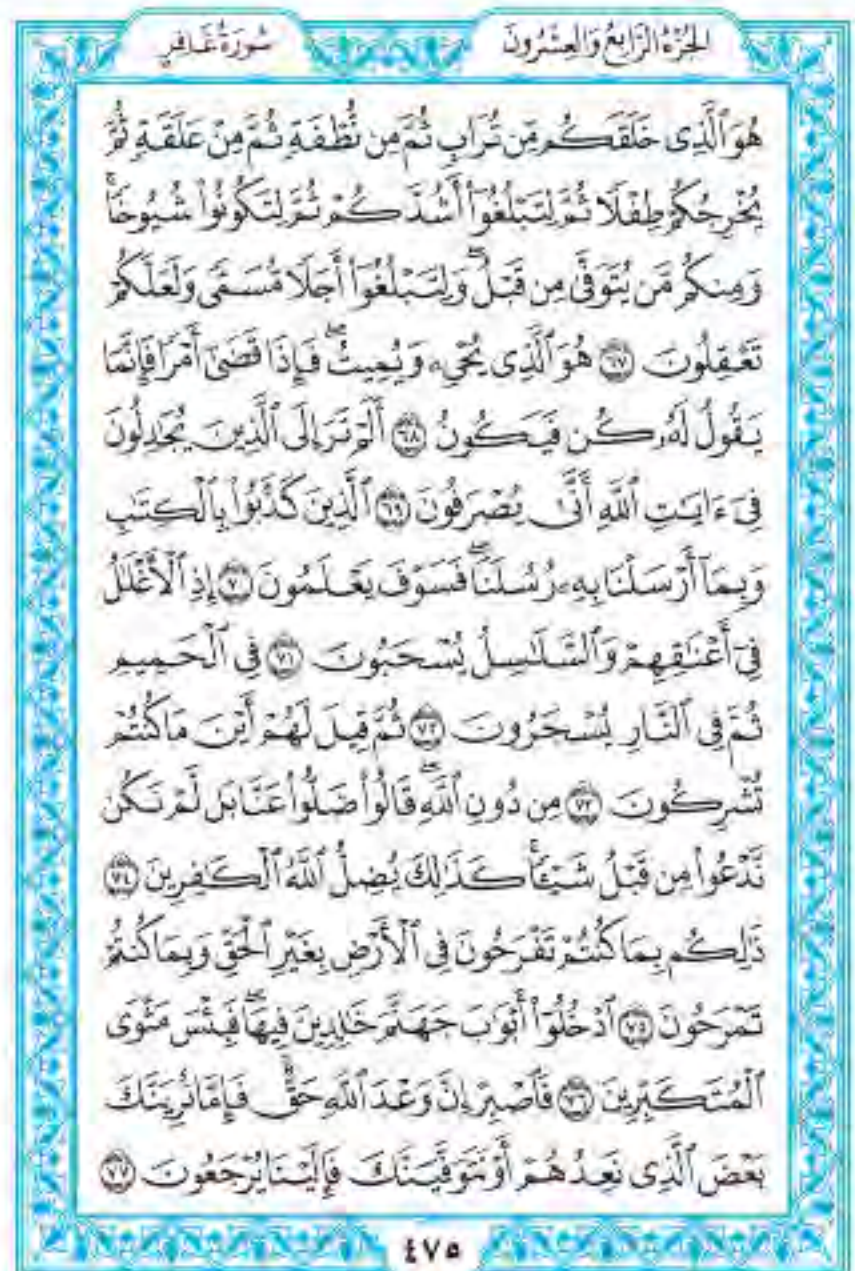 سُورَةُ غَافِرٍ
الجُزْءُ الرَّابِعُ وَالعِشْرُونَ
هُوَ ٱلَّذِى خَلَقَكُم مِّن تُرَابٍ ثُمَّ مِن نُّطْفَةٍ ثُمَّ مِنْ عَلَقَةٍ ثُمَّ
يُخْرِجُكُمْ طِفْلًا ثُمَّ لِتَبْلُغُوٓا۟ أَشُدَّكُمْ ثُمَّ لِتَكُونُوا۟ شُيُوخًا ۚ
وَمِنكُم مَّن يُتَوَفَّىٰ مِن قَبْلُ ۖ وَلِتَبْلُغُوٓا۟ أَجَلًا مُّسَمًّى وَلَعَلَّكُمْ
تَعْقِلُونَ ٦٧ هُوَ ٱلَّذِى يُحْىِۦ وَيُمِيتُ ۖ فَإِذَا قَضَىٰٓ أَمْرًا فَإِنَّمَا
يَقُولُ لَهُۥ كُن فَيَكُونُ ٦٨ أَلَمْ تَرَ إِلَى ٱلَّذِينَ يُجَٰدِلُونَ
فِىٓ ءَايَٰتِ ٱللَّهِ أَنَّىٰ يُصْرَفُونَ ٦٩ ٱلَّذِينَ كَذَّبُوا۟ بِٱلْكِتَٰبِ
وَبِمَآ أَرْسَلْنَا بِهِۦ رُسُلَنَا ۖ فَسَوْفَ يَعْلَمُونَ ٧٠ إِذِ ٱلْأَغْلَٰلُ
فِىٓ أَعْنَٰقِهِمْ وَٱلسَّلَٰسِلُ يُسْحَبُونَ ٧١ فِى ٱلْحَمِيمِ
ثُمَّ فِى ٱلنَّارِ يُسْجَرُونَ ٧٢ ثُمَّ قِيلَ لَهُمْ أَيْنَ مَا كُنتُمْ
تُشْرِكُونَ ٧٣ مِن دُونِ ٱللَّهِ ۖ قَالُوا۟ ضَلُّوا۟ عَنَّا بَل لَّمْ نَكُن
نَّدْعُوا۟ مِن قَبْلُ شَيْـًٔا ۚ كَذَٰلِكَ يُضِلُّ ٱللَّهُ ٱلْكَٰفِرِينَ ٧٤
ذَٰلِكُم بِمَا كُنتُمْ تَفْرَحُونَ فِى ٱلْأَرْضِ بِغَيْرِ ٱلْحَقِّ وَبِمَا كُنتُمْ
تَمْرَحُونَ ٧٥ ٱدْخُلُوٓا۟ أَبْوَٰبَ جَهَنَّمَ خَٰلِدِينَ فِيهَا ۖ فَبِئْسَ مَثْوَى
ٱلْمُتَكَبِّرِينَ ٧٦ فَٱصْبِرْ إِنَّ وَعْدَ ٱللَّهِ حَقٌّ ۚ فَإِمَّا نُرِيَنَّكَ
بَعْضَ ٱلَّذِى نَعِدُهُمْ أَوْ نَتَوَفَّيَنَّكَ فَإِلَيْنَا يُرْجَعُونَ ٧٧
٤٧٥